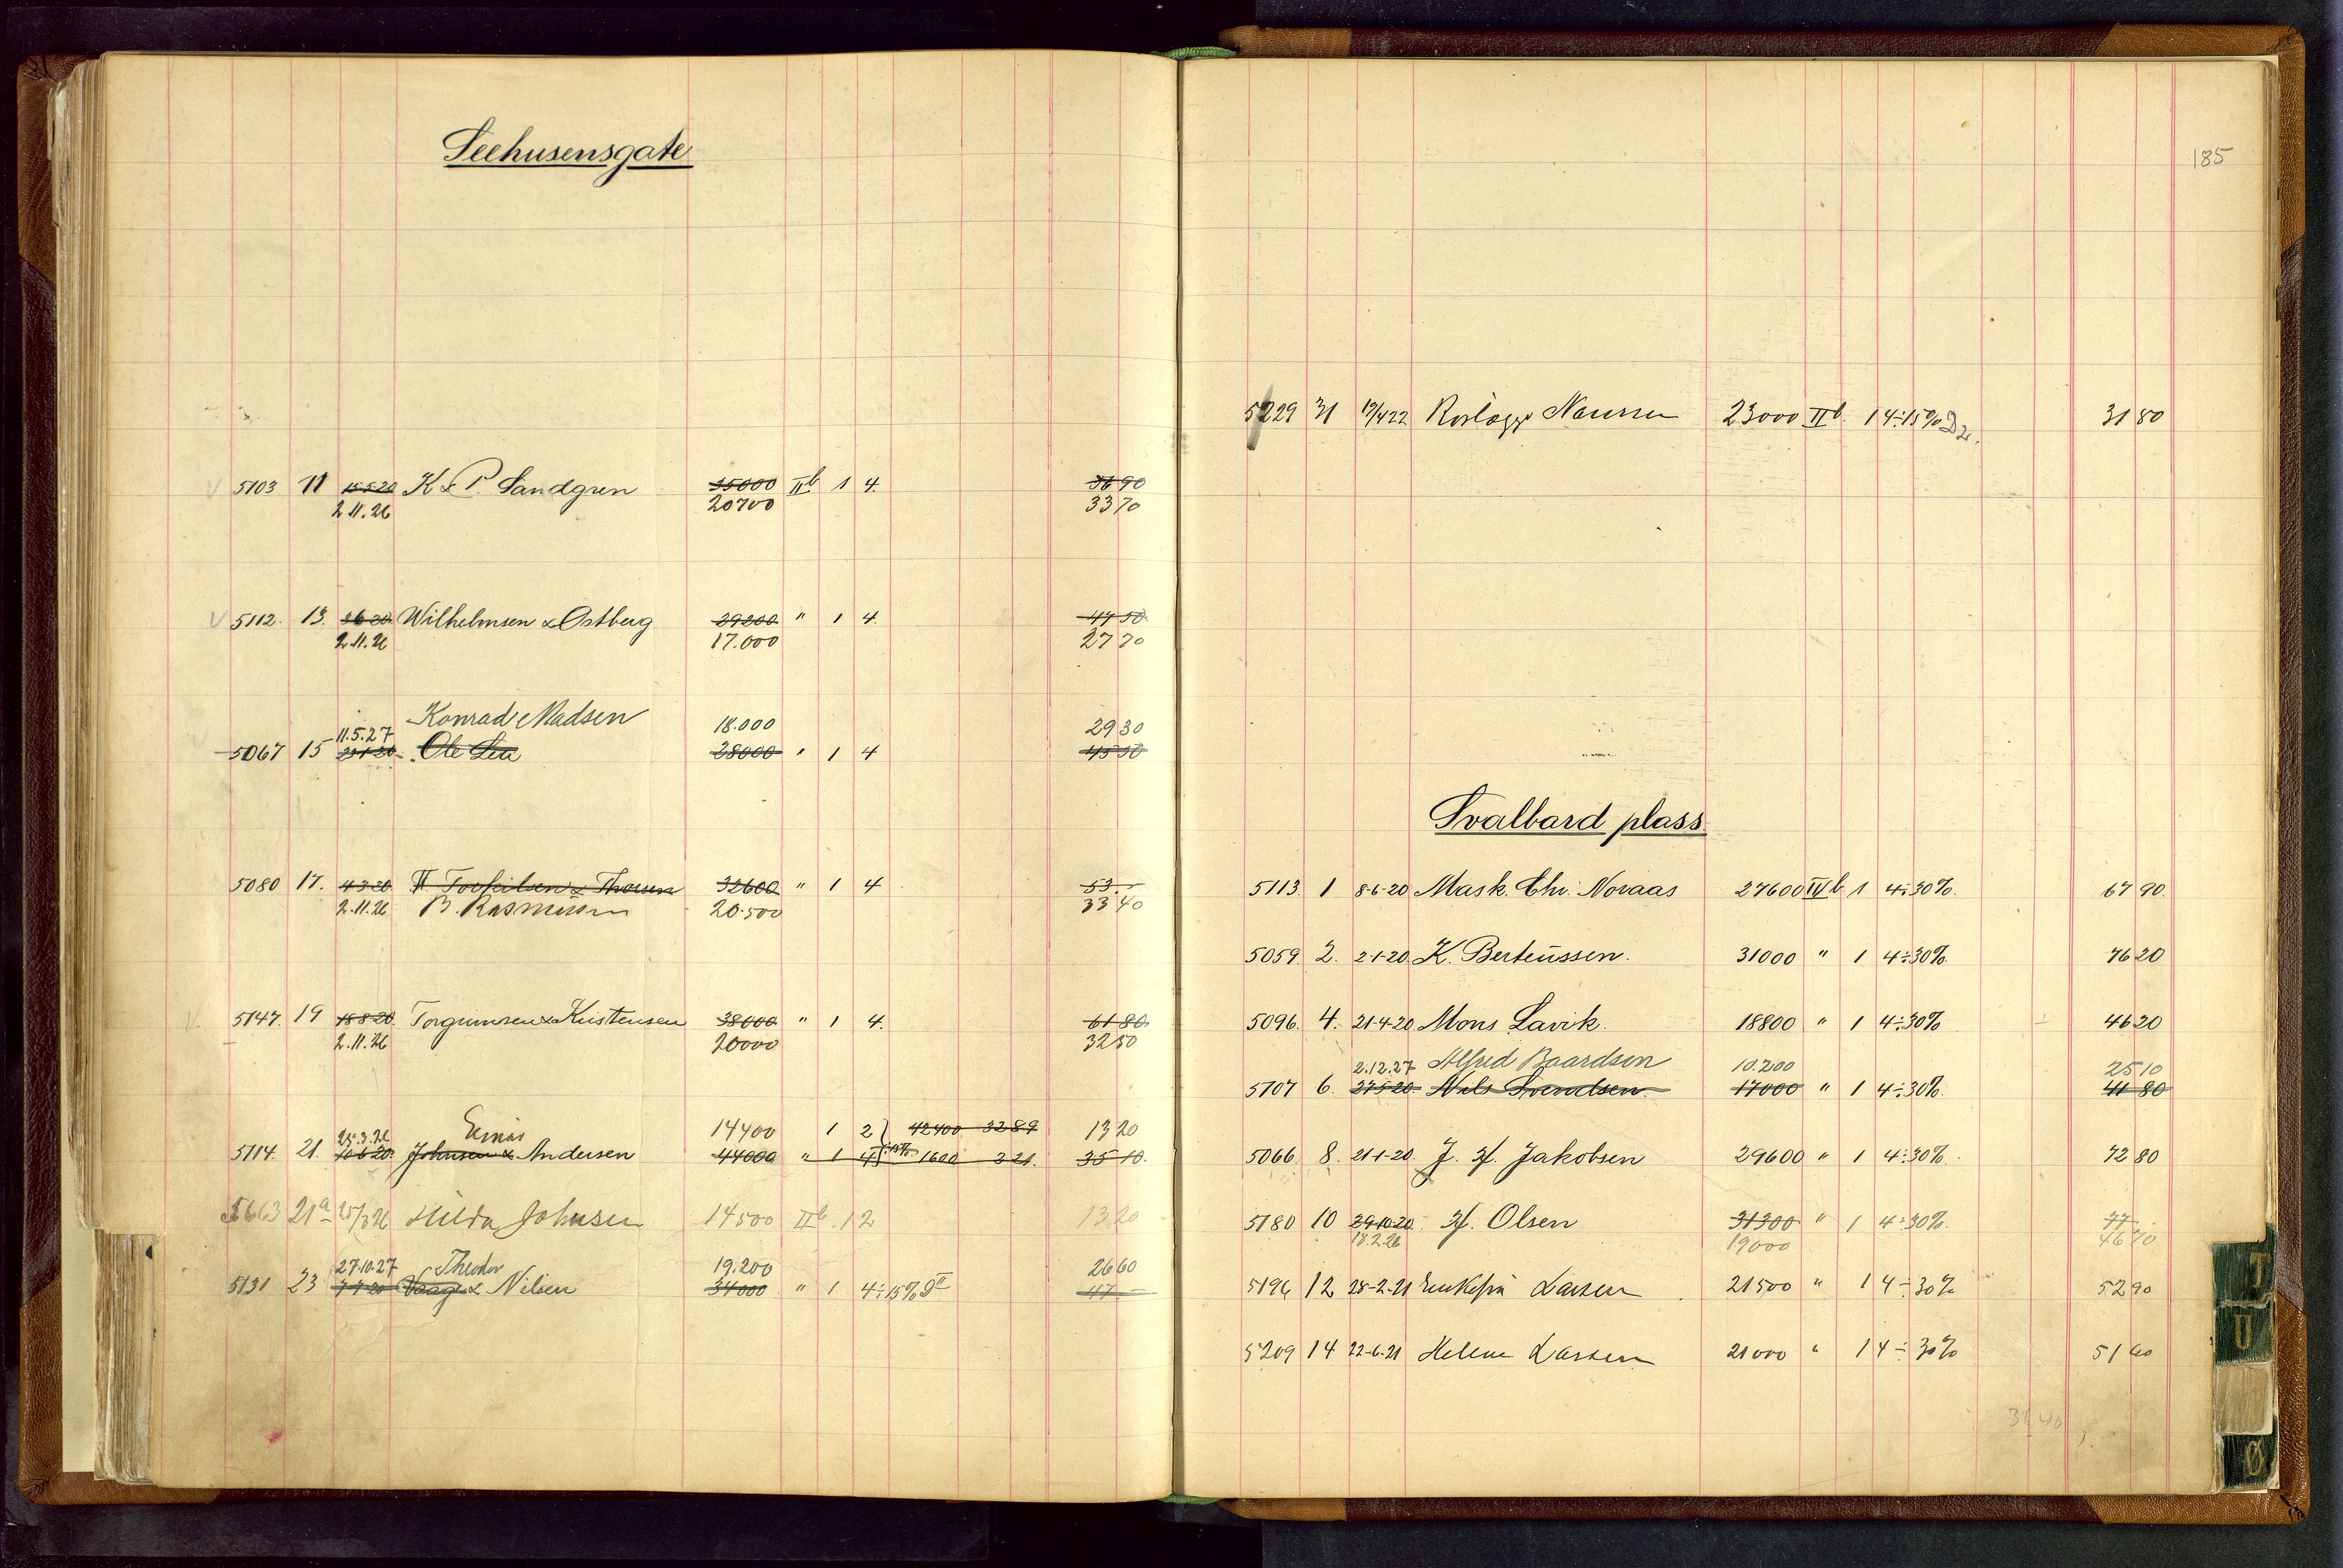 Seehusensgate
5103 11 15-5-20 K & P. Sandgren 35000 IIb 1 4. 56 90
2.11.26 20700 33 70
5112. 13. 3 6 20 Wilhelmsen & Ostberg 29200 " 1 4. 47 50
2.11.26 17.000 27 70
Konrad Madsen 18.000 29 30
11.5.27
5067 15 Ole Lea 28000 " 1 4 45 50
5080 17. 4-3-20 & Thorsen 32600 " 1 4 53.-
2.11.26 B. Rasmussen 20.500 33 40
5147. 19 18-8-20. Torgrimsen & Kristensen 38000 " 1 4. 61 80
2.11.26 20000 32 50
Einar 14400 1 2 } 42400 32 89 13 20
25.3.26
5114. 21. 10 6 20. Johnsen & Andersen 44000 " 1 4 } ÷15%. 1600 2 21. 35 10.
5663 21a 25/3 26 Hilda Johnsen 14500 IIb. 1 2 13 20
27.10.27 Theodor 19.200 26 60
5131 23 7-7-20 Vaage & Nilsen 34000 " 1 4÷15% 47 -
185
5229 31 19/4 22 23000 IIb. 1 4÷15% 31 80
Svalbard plass.
5113. 1 8-6-20 Mask. Chr. Novaas 27600 IVb 1 4÷30%. 67 90.
5059. 2. 2-1-20. K. Berteussen. 31000 " 1 4÷30%. 76 20
5096. 4. 21-4-20 Mons Lavik. 18800 " 1 4÷30% 46 20
2.12.27 Alfred Baardsen 10.200 25 10
5107 6. 27 5-20. Nils Svendsen. 17000 " 1 4÷30%. 41 80
5066. 8. 21-1-20. J. H. Jakobsen 29600 " 1 4÷30%. 72 80
5180 10 29-10-20. H. Olsen 31300 " 1 4÷30%. 77 -
18.2.26 19000 46 70
5196 12 28-2-21 Enkefru Larsen 21500 " 1 4÷30% 52 90
5209 14 22-6-21 Helene Larsen 21000 " 1 4÷30% 51 60
T
U
Ø